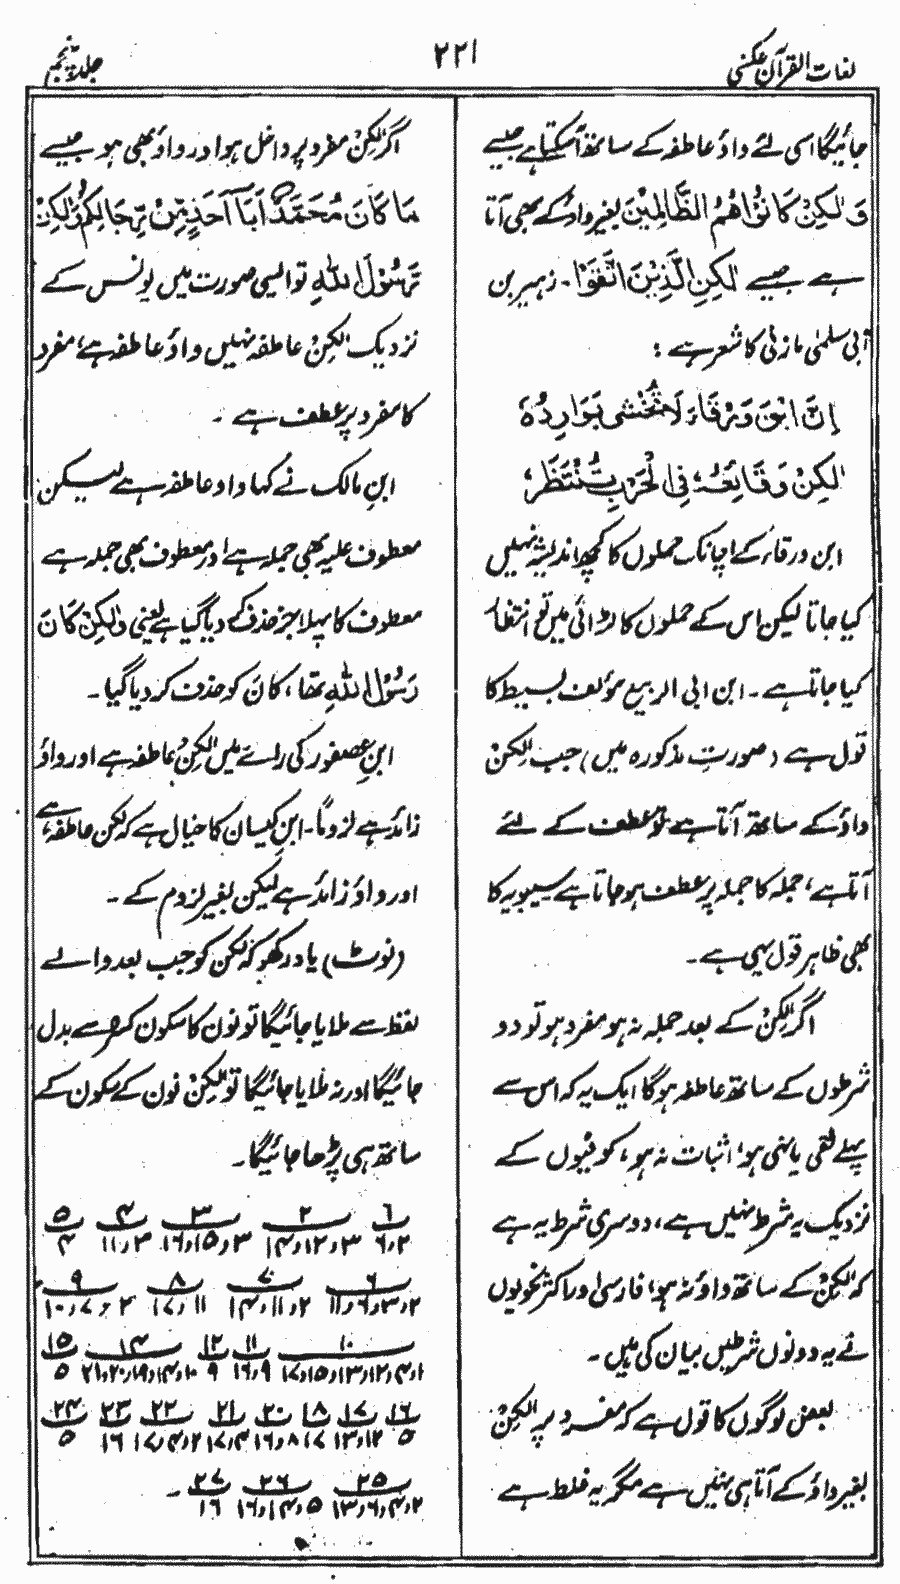 لغات القرآن عکسی
۲۲۱
جلد پنجم
جائیگا اسی لئے واؤ عاطفہ کے ساتھ آسکتا ہے جیسے
وَلٰكِنْ كَانُوْا هُمُ الظَّالِمِيْنَ بغیر واؤ کے بھی آتا
ہے جیسے لٰكِنِ الَّذِيْنَ اتَّقَوْا۔ زہیر بن
ابی سلمٰی مازنی کا شعر ہے :
اِنَّ ابْنَ وَرْقَاءَ لَا تُخْشٰى بَوَادِرُهٗ
لٰكِنْ وَقَائِعُهٗ فِی الْحَرْبِ تُنْتَظَرٗ
ابن ورقاء کے اچانک حملوں کا کچھ اندیشہ نہیں
کیا جاتا لیکن اس کے حملوں کا لڑائی میں تو انتظار
کیا جاتا ہے۔ ابن ابی الربیع مؤلف بسیط کا
قول ہے (صورتِ مذکورہ میں) جب لٰکِنْ
واؤ کے ساتھ آتا ہے تو عطف کے لئے
آتا ہے، جملہ کا جملہ پر عطف ہو جاتا ہے سیبویہ کا
بھی ظاہر قول یہی ہے۔
اگر لٰکِنْ کے بعد جملہ نہ ہو مفرد ہو تو دو
شرطوں کے ساتھ عاطفہ ہوگا ایک یہ کہ اس سے
پہلے نفی یا نہی ہو، اثبات نہ ہو، کوفیوں کے
نزدیک یہ شرط نہیں ہے، دوسری شرط یہ ہے
کہ لٰکِنْ کے ساتھ واؤ نہ ہو، فارسی اور اکثر نحویوں
نے یہ دونوں شرطیں بیان کی ہیں۔
بعض لوگوں کا قول ہے کہ مفرد پر لٰکِنْ
بغیر واؤ کے آتا ہی نہیں ہے مگر یہ غلط ہے
اگر لٰکِنْ مفرد پر داخل ہو اور واؤ بھی ہو جیسے
مَا كَانَ مُحَمَّدٌ اَبَا اَحَدٍ مِّنْ رِّجَالِكُمْ وَلٰكِنْ
رَّسُوْلَ اللّٰهِ تو ایسی صورت میں یونس کے
نزدیک لٰکِنْ عاطفہ نہیں واؤ عاطفہ ہے، مفرد
کا مفرد پر عطف ہے۔
ابنِ مالک نے کہا واو عاطفہ ہے لیکن
معطوف علیہ بھی جملہ ہے اور معطوف بھی جملہ ہے
معطوف کا پہلا جز حذف کر دیا گیا ہے یعنی وَلٰكِنْ كَانَ
رَسُوْلَ اللّٰهِ تھا، كَانَ کو حذف کر دیا گیا۔
ابنِ عصفور کی رائے میں لٰکِنْ عاطفہ ہے اور واؤ
زائد ہے لزوماً۔ ابنِ کیسان کا خیال ہے کہ لٰکن عاطفہ ہے
اور واؤ زائد ہے لیکن بغیر لزوم کے۔
(نوٹ) یاد رکھو کہ لٰکن کو جب بعد والے
لفظ سے ملایا جائیگا تو نون کا سکون کسرہ سے بدل
جائیگا اور نہ ملایا جائیگا تو لٰکِنْ نون کے سکون کے
ساتھ ہی پڑھا جائیگا۔
۶ ۲ ۳ ۴ ۵
۲و۶ ۳و۱۲و۱۴ ۳و۱۵و۱۶ ۳و۱۱ ۴
۶ ۷ ۸ ۹
۲و۳و۶و۱۱ ۲و۱۱و۱۴ ۱۱و۱۷ ۲و۷و۱۰
۱۰ ۱۱ ۱۲ ۱۴ ۱۵
۱و۴و۱۲و۱۳و۱۵و۱۷ ۹و۱۶ ۹ ۱۰و۱۴و۱۹و۲۰و۲۱ ۵
۱۶ ۱۷ ۱۸ ۲۰ ۲۱ ۲۲ ۲۳ ۲۴
۵ ۱۲و۱۳ ۱۷ ۸و۱۶ ۴و۱۷ ۲و۴و۱۷ ۱۶ ۵
۲۵ ۲۶ ۲۷
۲و۴و۶و۱۳ ۵و۱۴و۱۶ ۱۶ ۔